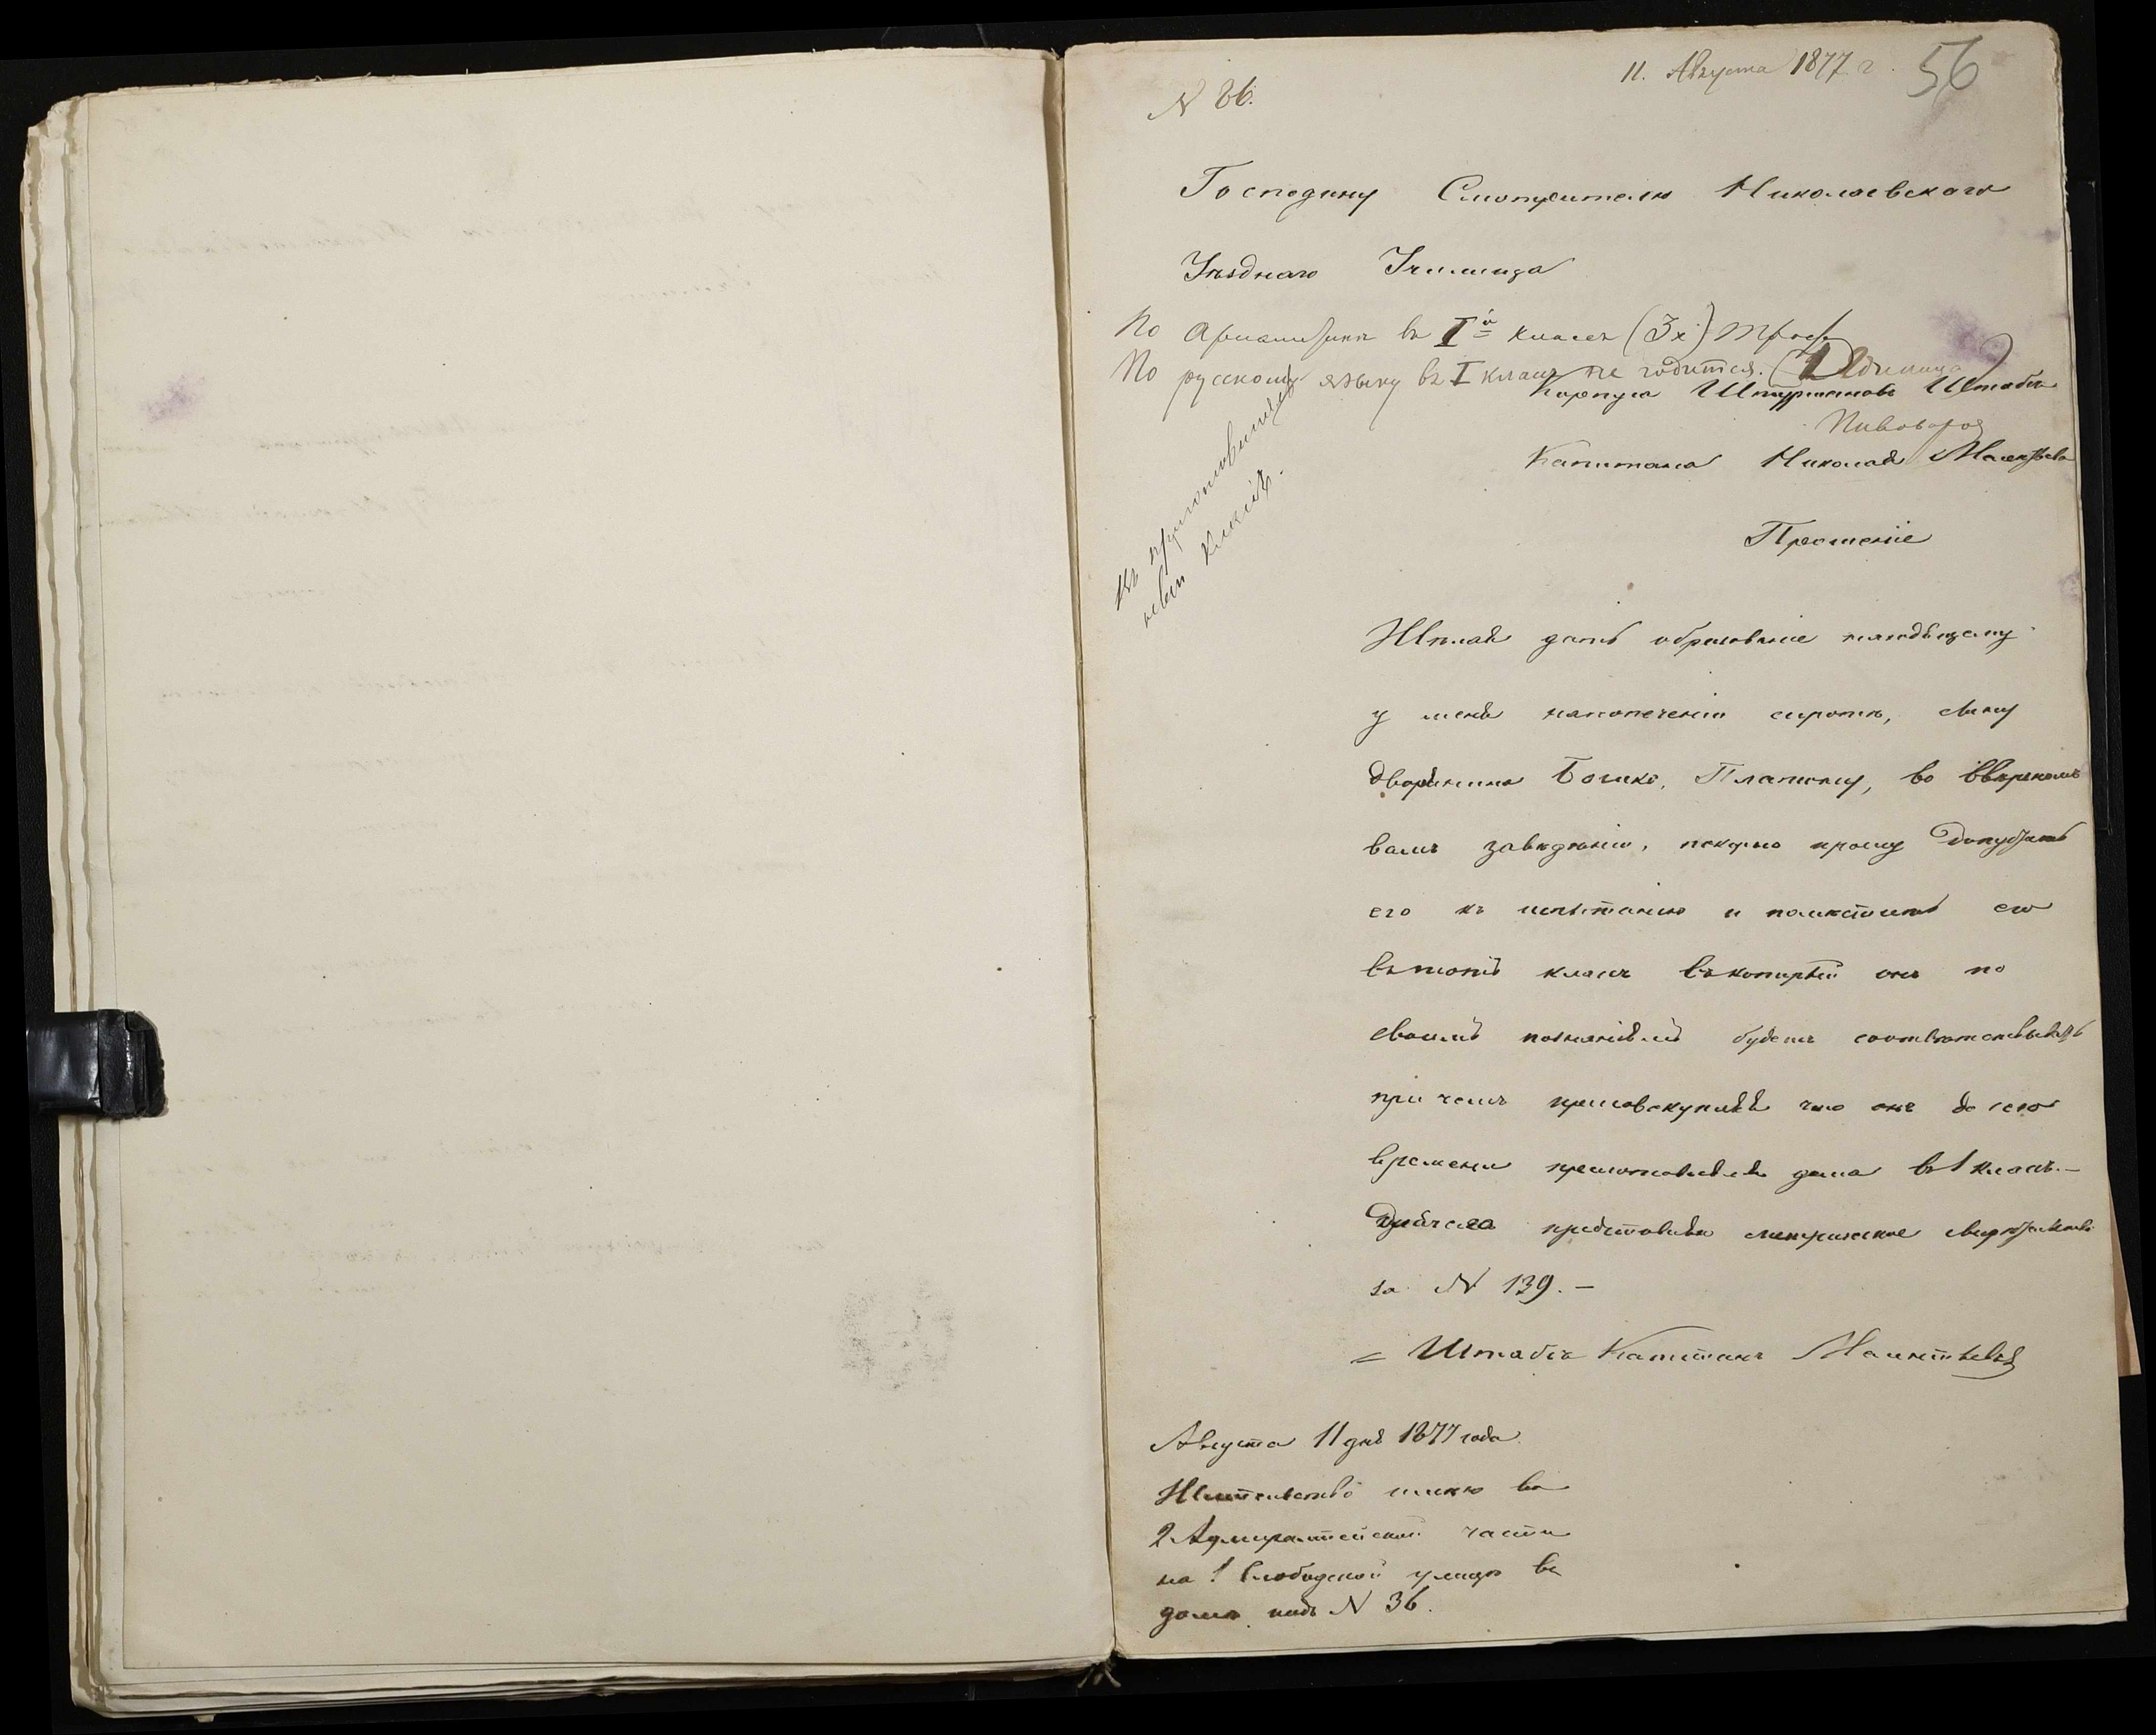 11. Августа 1877 г. 56
N 86.
Господину Смотрителю Николаевскаго
Уѣзднаго Училища
По Ариѳметикѣ въ I й классъ (3х) Три
По русскому языку въ I классъ не годится. (1) Единица
Корпуса Штурмановъ Штабсъ
Пивоваровъ
Капитана Николая
Прошеніе
Въ приготовительный
классъ.
Желая дать образованіе находящемуся
у меня напопеченіи сиротѣ, сыну
дворянина Бошко, Платону, во ввѣренномъ
вамъ заведеніи, покорно прошу допустить
его къ испытанію и помѣстить его
въ тотъ классъ въ который онъ по
своимъ познаніямъ будетъ соотвѣтствовать
при чемъ присовокупляя что онъ до сего
времени приготовлялся дома въ 1 классъ. —
При семъ представляю метрическое свидѣтельство
за N 139. —
= Штабсъ Капитанъ
Августа 11 дня 1877 года
Жительство имѣю во
2 Адмиралтейской части
на 1 Слободской улицѣ въ
домѣ подъ N 36.